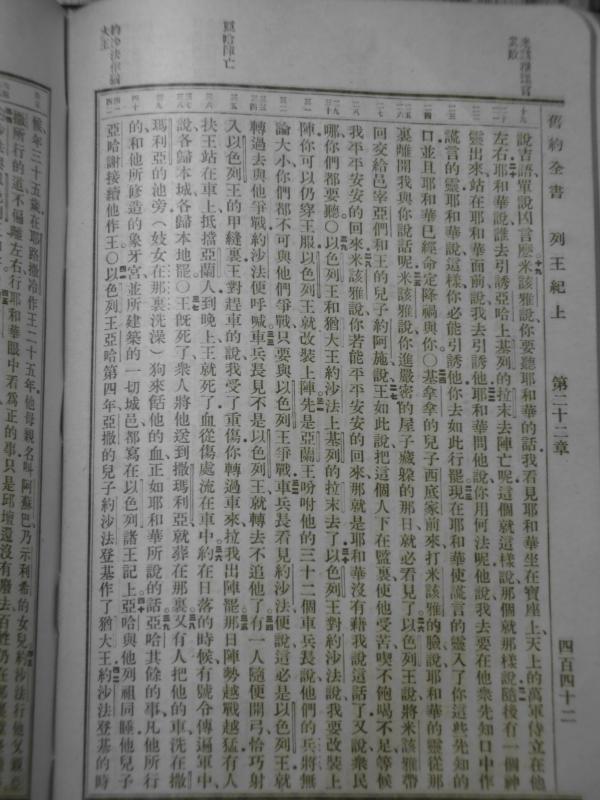 舊約全書 列王紀上 第二十二章 四百四十二
說吉語單說凶言麽米該雅說你要聽耶和華的話我看見耶和華坐在寶座上天上的萬軍侍立在他
左右耶和華說誰去引誘亞哈上基列的拉末去陣亡呢這個就這樣說那個就那樣說隨後有一個神
靈出來站在耶和華面前說我去引誘他耶和華問他說你用何法呢他說我去要在他衆先知口中作
謊言的靈耶和華說這樣你必能引誘他你去如此行罷現在耶和華使謊言的靈入了你這些先知的
口並且耶和華已經命定降禍與你〇基拿拿的兒子西底家前來打米該雅的臉說耶和華的靈從那
裏離開我與你說話呢米該雅說你進嚴密的屋子藏躱的那日就必看見了以色列王說將米該雅帶
回交給邑宰亞們和王的兒子約阿施說王如此說把這個人下在監裏使他受苦喫不飽喝不足等候
我平平安安的回來米該雅說你若能平平安安的回來那就是耶和華沒有藉我說這話了又說衆民
哪你們都要聽〇以色列王和猶大王約沙法上基列的拉末去了以色列王對約沙法說我要改裝上
陣你可以仍穿王服以色列王就改裝上陣先是亞蘭王吩咐他的三十二個車兵長說他們的兵將無
論大小你們都不可與他們爭戰只要與以色列王爭戰車兵長看見約沙法便說這必是以色列王就
轉過去與他爭戰約沙法便呼喊車兵長見不是以色列王就轉去不追他了有一人隨便開弓恰巧射
入以色列王的甲縫裏王對趕車的說我受了重傷你轉過車來拉我出陣罷那日陣勢越戰越猛有人
扶王站在車上抵擋亞蘭人到晚上王就死了血從傷處流在車中約在日落的時候有號令傳遍軍中
說各歸本城各歸本地罷〇王旣死了衆人將他送到撒瑪利亞就葬在那裏又有人把他的車洗在撒
瑪利亞的池旁（妓女在那裏洗澡）狗來餂他的血正如耶和華所說的話亞哈其餘的事凡他所行
的和他所修造的象牙宮並所建築的一切城邑都寫在以色列諸王記上亞哈與他列祖同睡他兒子
亞哈謝接續他作王〇以色列王亞哈第四年亞撒的兒子約沙法登基作了猶大王約沙法登基的時
候年三十五歲在耶路撒冷作王二十五年他母親名叫阿蘇巴乃示利希的女兒約沙法行他父親亞
撒所行的道不偏離左右行耶和華眼中看爲正的事只是邱壇還沒有廢去百姓仍在那裏